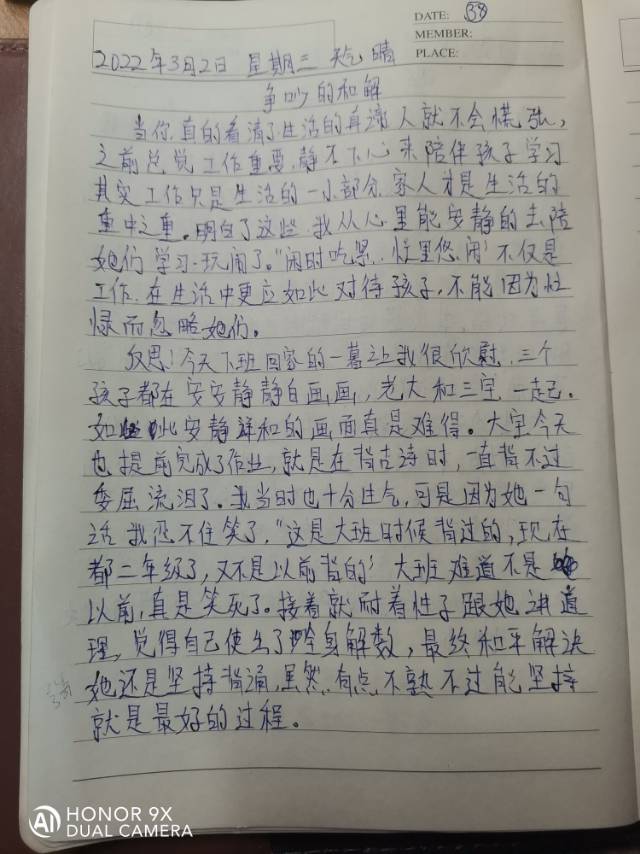 DATE: 38
MEMBER:
PLACE:
2022年3月2日 星期三 天气 晴
争吵的和解
当你真的看清了生活的真谛人就不会慌张,
之前总觉工作重要,静不下心来陪伴孩子学习
其实工作只是生活的一小部分,家人才是生活的
重中之重。明白了这些,我从心里能安静的去陪
她们学习、玩闹了。"闲时吃紧,忙里悠闲"不仅是
工作,在生活中更应如此对待孩子,不能因为忙
碌而忽略她们。
反思!今天下班回家的一幕让我很欣慰,三个
孩子都在安安静静自画画,老大和三宝一起。
如此安静详和的画面真是难得。大宝今天
也提前完成了作业,就是在背古诗时,一直背不过
委屈流泪了。我当时也十分生气,可是因为她一句
话我忍不住笑了,"这是大班时候背过的,现在
都二年级了,又不是以前背的"大班难道不是
以前,真是笑死了。接着就耐着性子跟她讲道
理,觉得自己使出了全身解数,最终和平解决
她还是坚持背诵,虽然有点不熟不过能坚持
就是最好的过程。
HONOR 9X
AI DUAL CAMERA